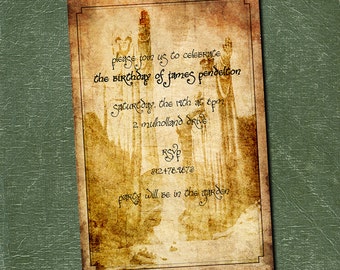 please join us to celebrate
the birthday of james pendelton
saturday, the 14th at 6pm
2 mulholland drive
rsvp
812.478.1673
party will be in the garden